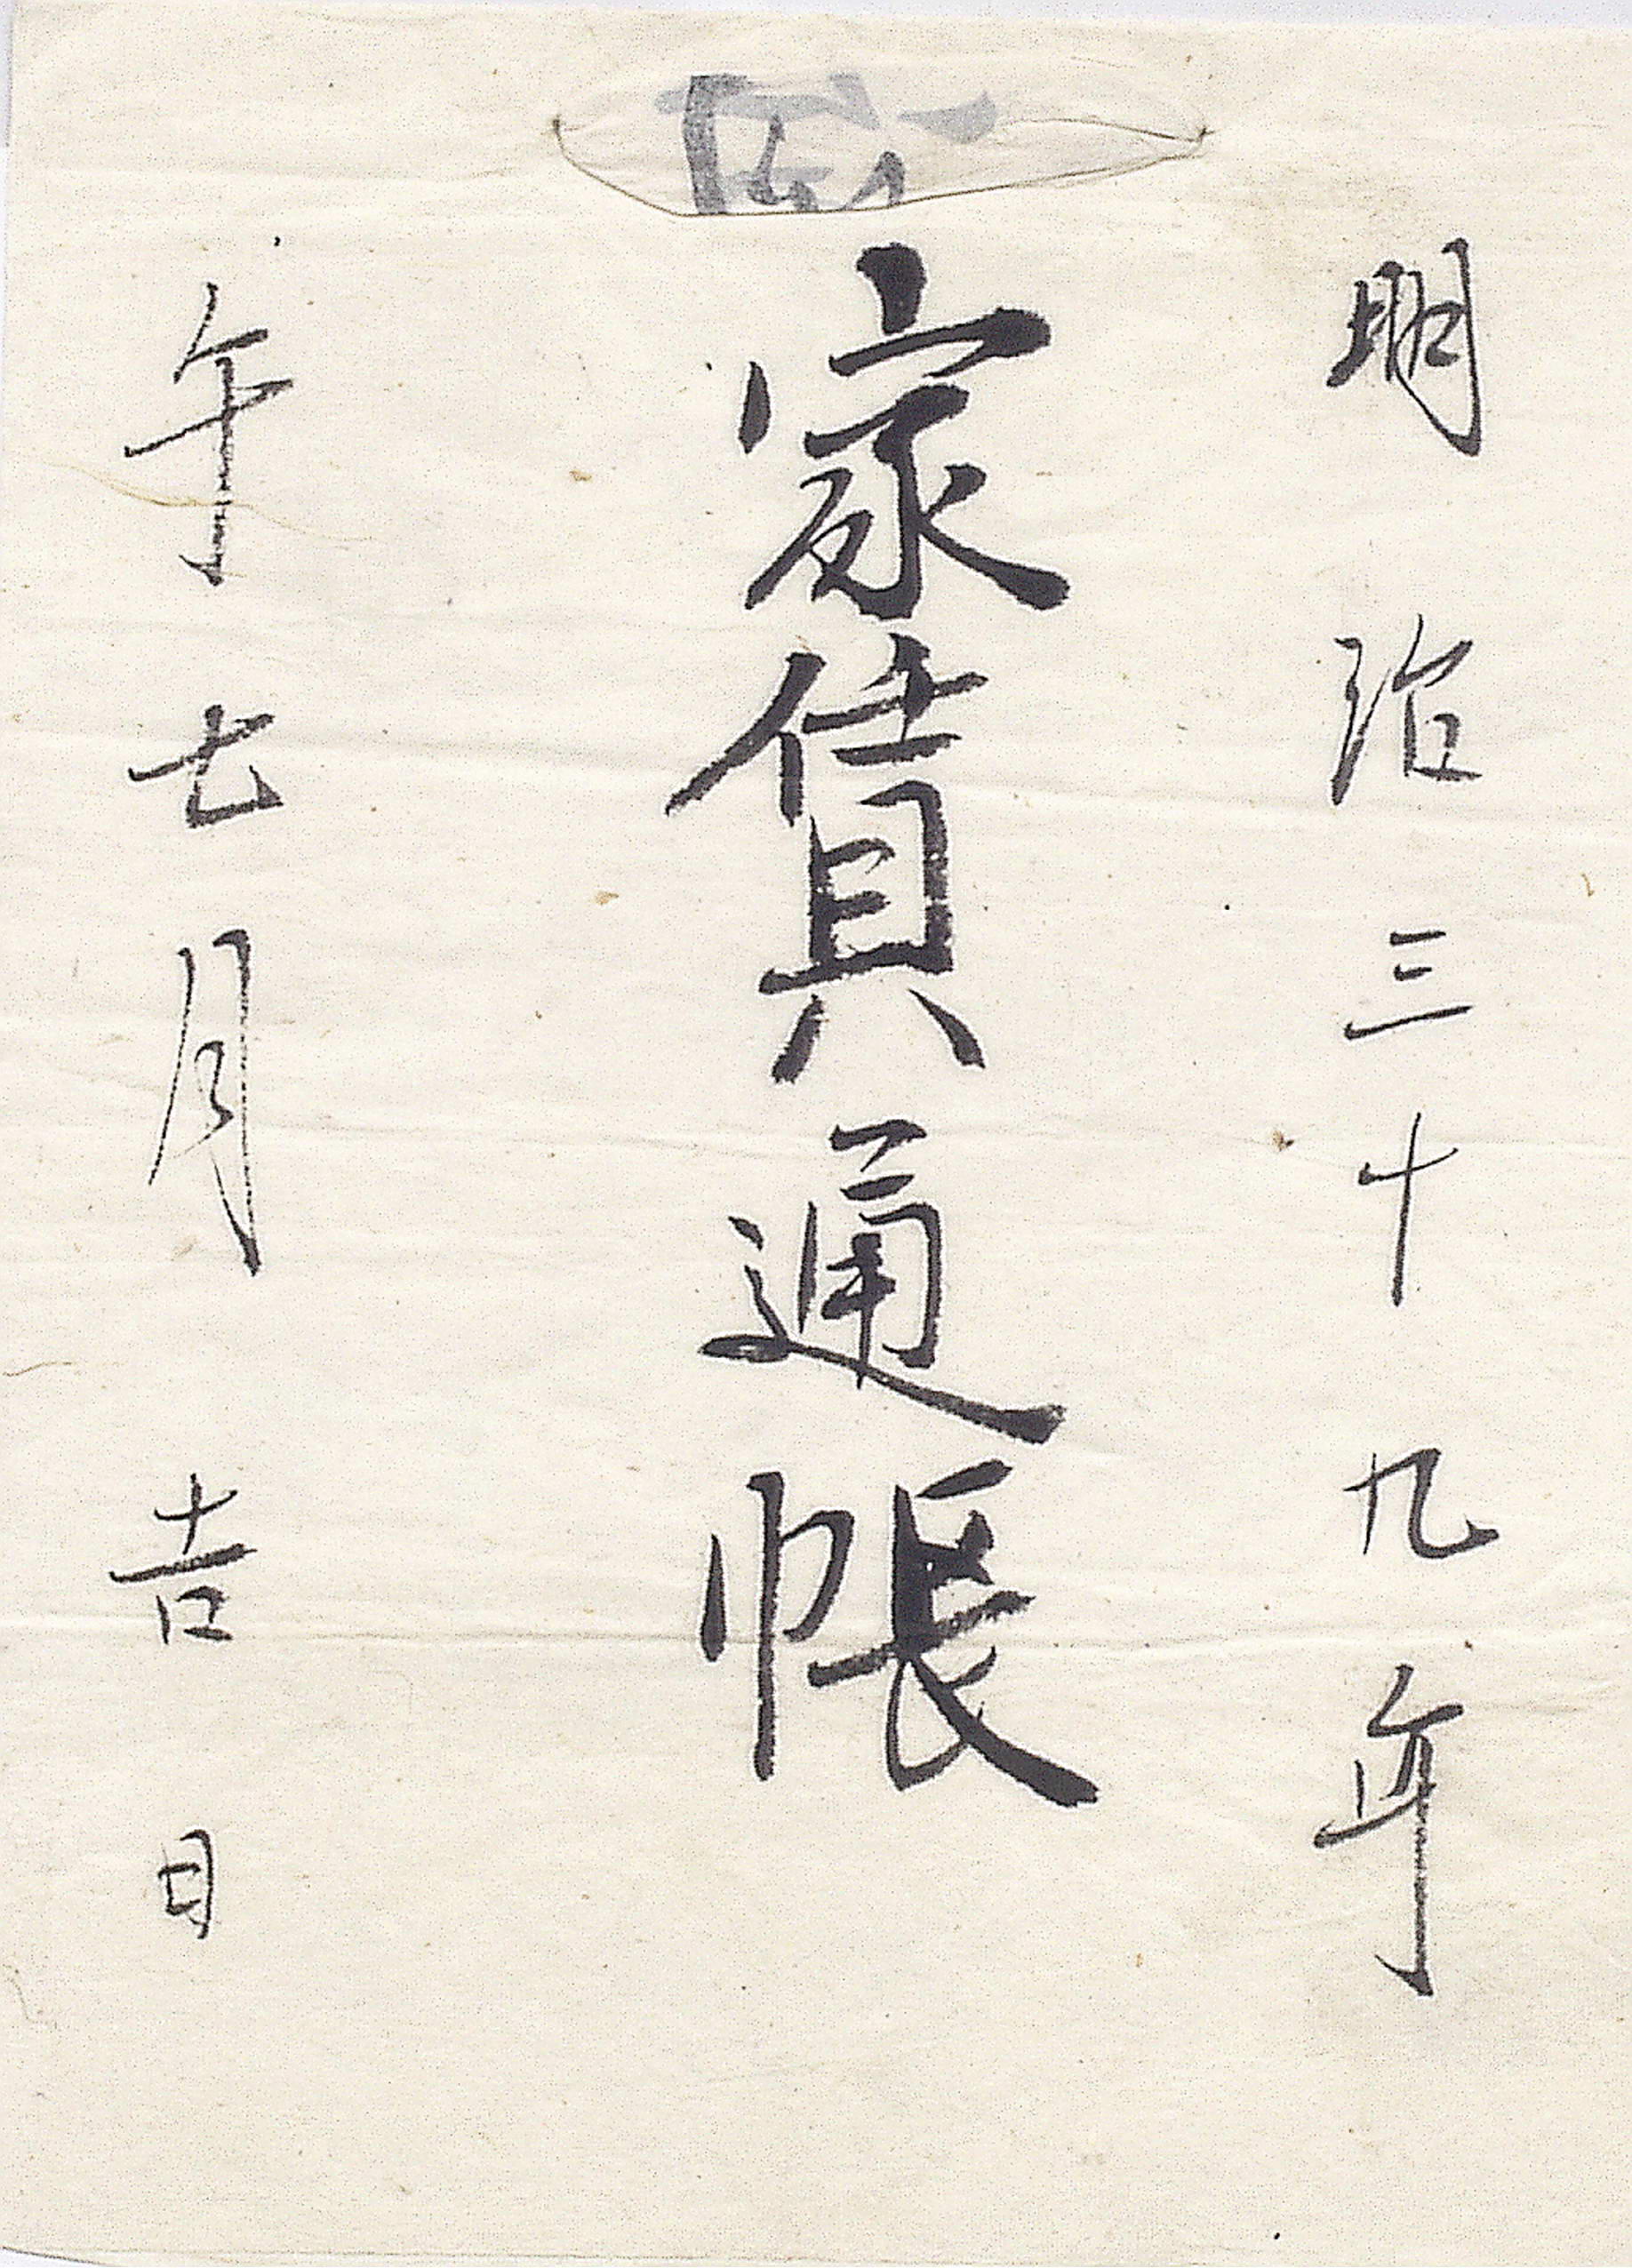 明治三十九年
家賃通帳
午七月吉日